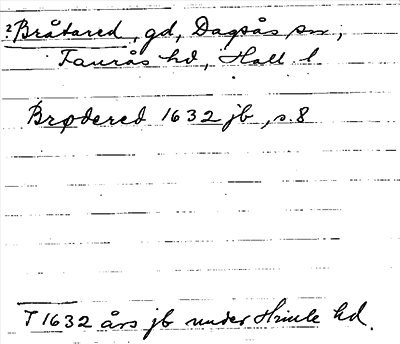 2 Bråtared, gd, Dagsås sn,
Faurås hd, Hall. l.
Brødered 1632 jb, s. 8
I 1632 års jb under Himle hd.